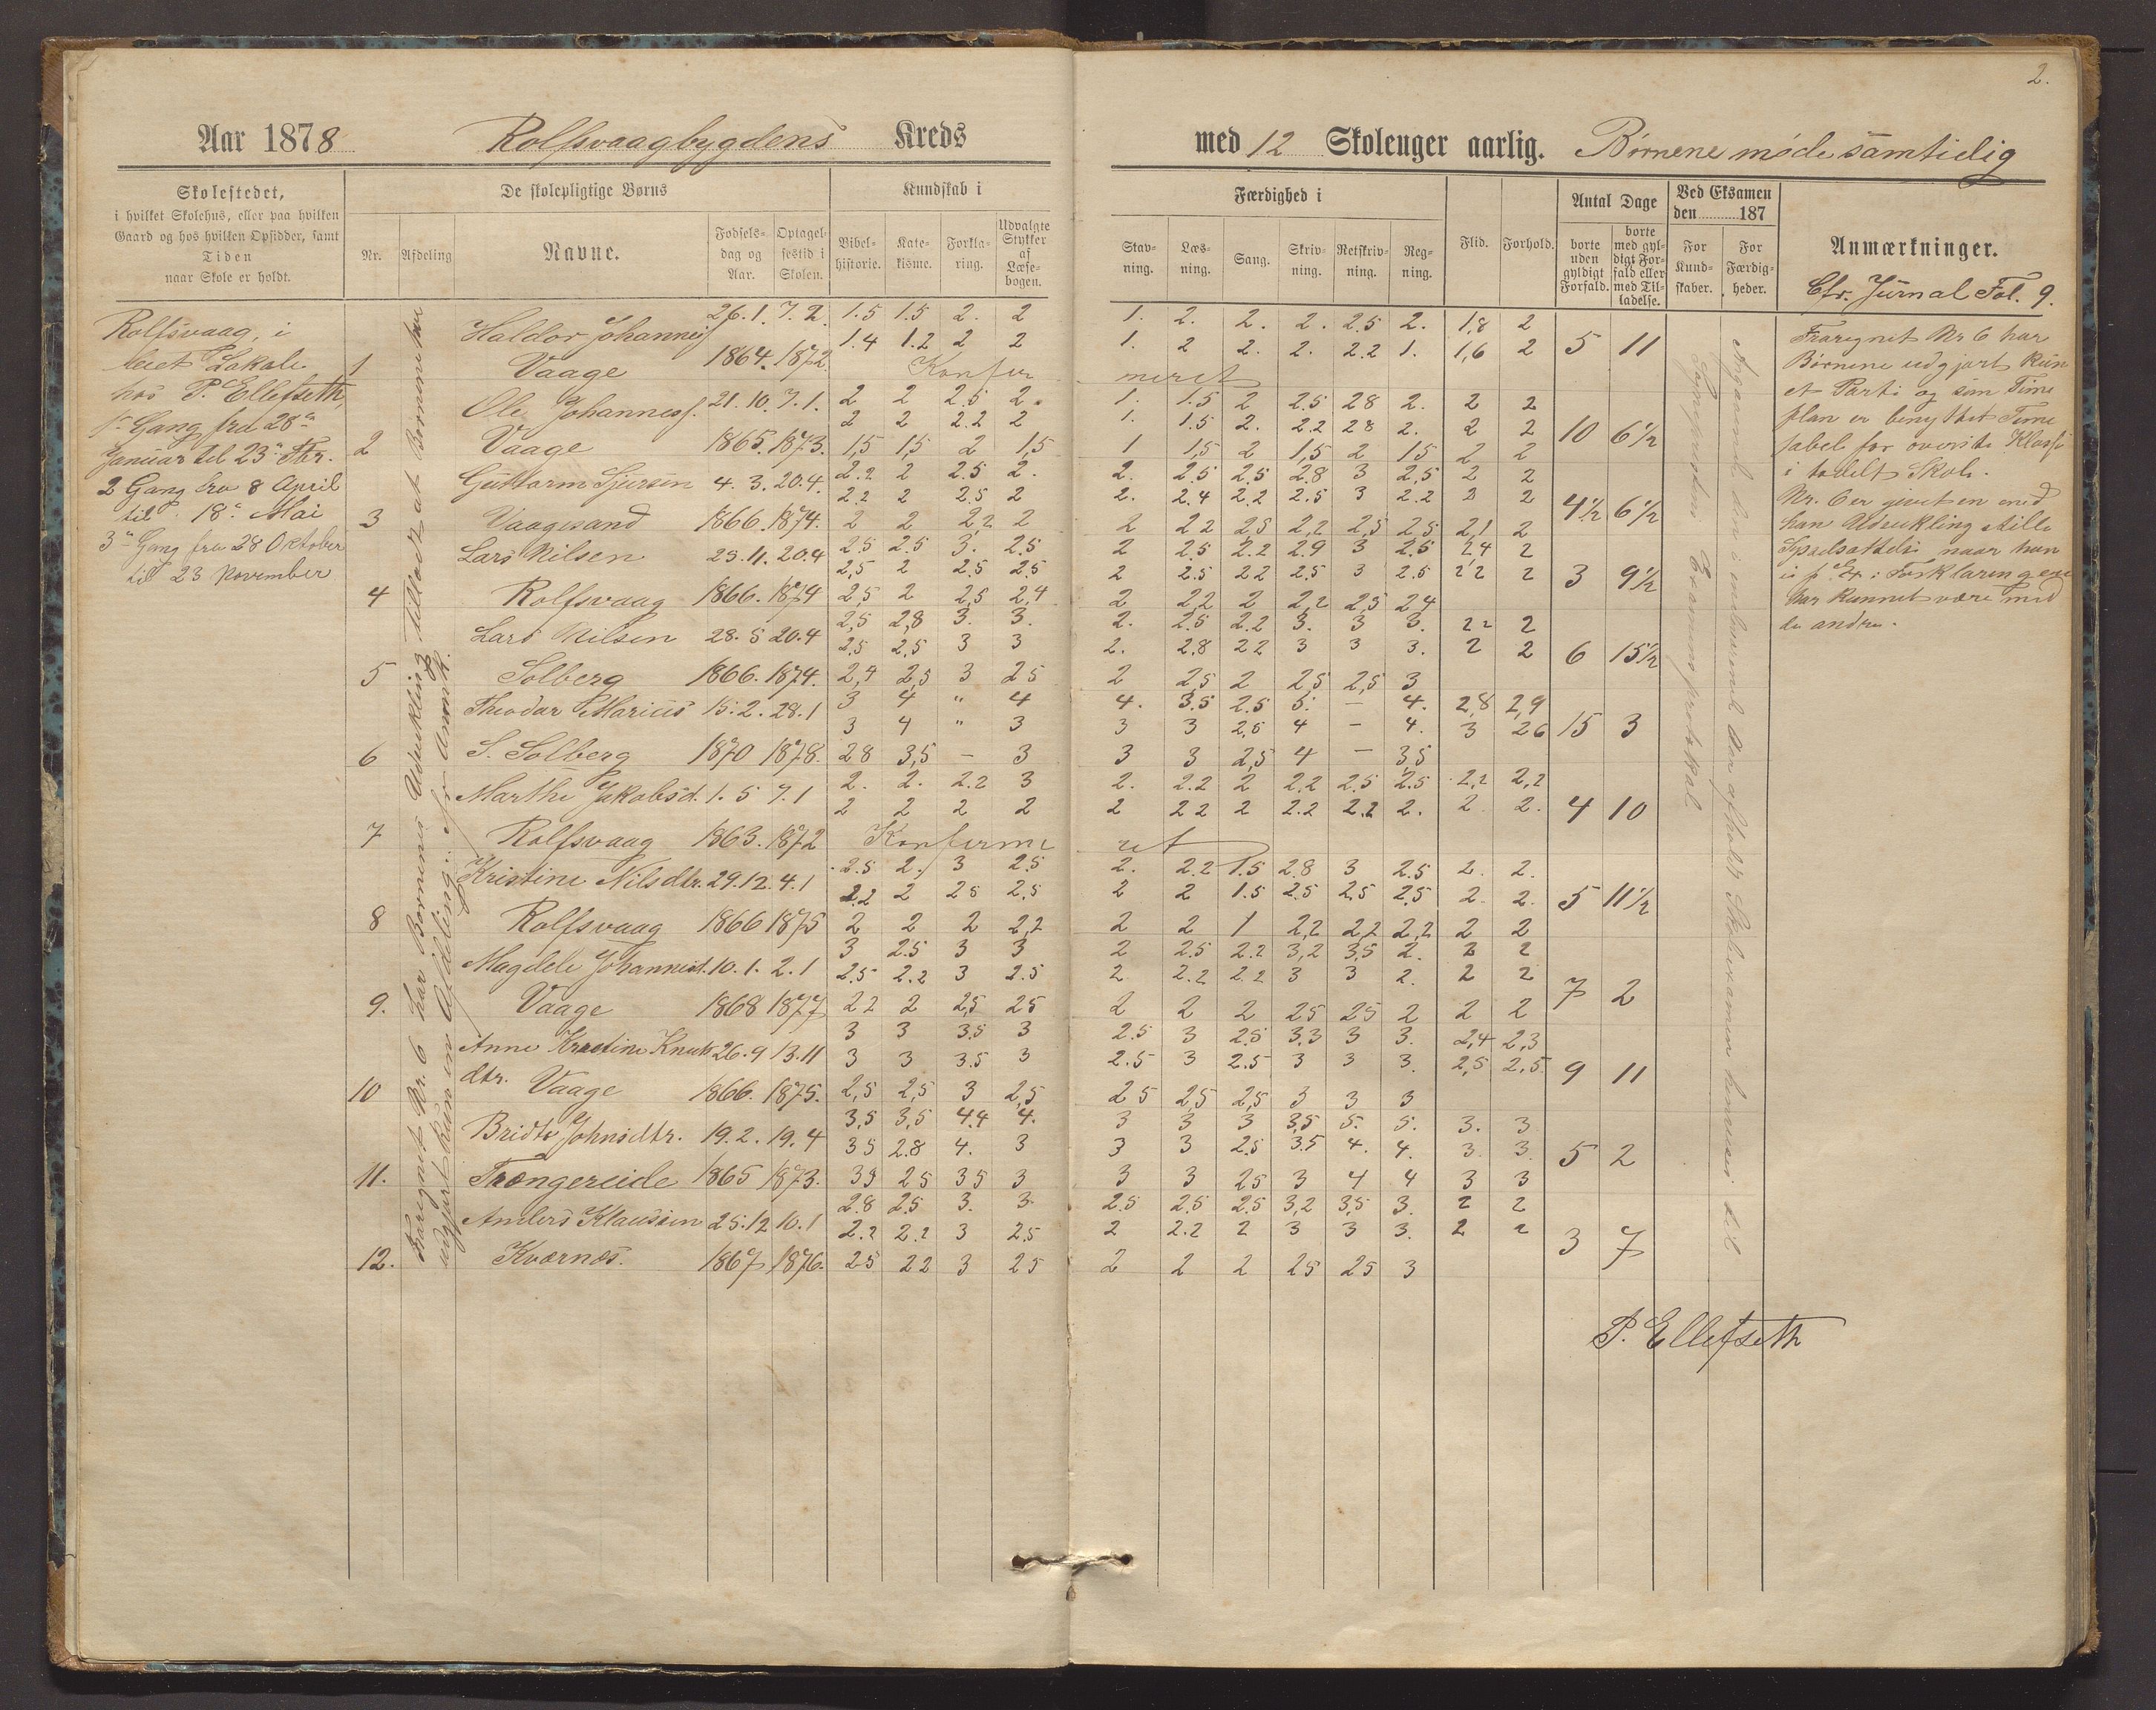 2.
Aar 1878 Rolfsvaagbygdens Kreds
med 12 Skoleuger aarlig. Børnene møde samtidig
Skolestedet,
i hvilket Skolehus, eller paa hvilken
Gaard og hos hvilken Opsidder, samt
Tiden
naar Skole er holdt.
De skolepligtige Børns
Nr. Afdeling Navne.
Fødsels-
dag og
Aar.
Optagel-
sestid i
Skolen.
Kundskab i
Bibel-
historie.
Kate-
kisme.
Forkla-
ring.
Udvalgte
Stykker
af
Læse-
bogen.
Færdighed i
Stav-
ning.
Læs-
ning.
Sang.
Skriv-
ning.
Retskriv-
ning.
Reg-
ning.
Flid.
Forhold.
Antal Dage
borte
uden
gyldigt
Forfald.
borte
med gyl-
digt For-
fald eller
med Til-
ladelse.
Ved Eksamen
den 187
For
Kund-
skaber.
For
Færdig-
heder.
Anmærkninger.
Cfr. Jurnal Fol. 9.
Rolfsvaag, i
leiet Lokale
hos P. Ellefseth,
1ste Gang fra 28de
Januar til 23de Fbr.
2 Gang fra 8 April
til 18de Mai
3de Gang fra 28 Oktober
til 23 November
Fraregnet Nr. 6 har Børnenes Udvikling tilladt at Børnene har
udgjort kun en Afdeling: cfr. Anmk.
Haldor Johannesf 26.1. 7.2. 1.5 1.5 2. 2 1. 2. 2. 2. 2.5 2. 1,8 2
1.4 1.2 2 2 1. 2 2. 2. 2.2 1. 1,6 2 5 11
1 Vaage 1864. 1872. Konfir meret
Ole Johannesf. 21.10. 7.1. 2 2 2.5 2. 1. 1.5 2 2.5 28 2. 2 2
2 2 2.2 2 1. 1.5 2. 2.2 28 2. 2 2 10 6 1/2
2 Vaage 1865. 1873. 1,5 1,5 2 1,5 1 1,5 2 1,5 2 15 2 2
Guttorm Sjursen 4.3. 20.4. 2.2 2 2.5 2. 2. 2.5 2.5 2.8 3 2,5 2 2
2.2 2 2.5 2 2. 2.4 2.2 2.5 3 2.2 2 2 4 1/2 6 1/2
3 Vaagesand 1866. 1874. 2 2 2,2 2 2 22 2,5 2,2 2,5 2,5 2,1 2
Lars Nilsen 23.11. 20.4 2.5 2.5 3. 2.5 2 25 2.2 29 3 2.5 24 2
2,5 2 2.5 25 2 2.5 22 2,5 3 2.5 22 2 3 9 1/2
4 Rolfsvaag 1866. 1874 2,5 2 2,5 2,4 2 2,2 2 2,2 2,5 24
Lars Nilsen 28.5 20.4 2,5 2,8 3. 3. 2. 2.5 2.2 3. 3 3. 22 2
2.5 2,5 3 3 2. 2,8 22 3 3 3. 2 2 6 15 1/2
5 Solberg 1866. 1874. 2,4 2,5 3 25 2 2,5 2 2,5 2,5 3
Theodor Marius 15.2. 28.1 3 4 " 4 4. 3.5 2.5 5. - 4. 2,8 2,9
3 4 " 3 3 3 2,5 4 - 4. 3 26 15 3
6 S. Solberg 1870 1878. 28 3,5 - 3 3 3 2,5 4 - 3,5
Marthe Jakobsd. 1.5 7.1 2. 2. 2.2 3 2. 2.2 2 2.2 2.5 2.5 2,2 2,2
2 2 2 2 2 22 2 2.2 2.2 2. 2 2. 4 10
7 Rolfsvaag 1863. 1872 Konfirme ret
Kristine Nilsdtr. 29.12. 4.1 2.5 2. 3 25 2. 2.2 1.5 2.8 3 2.5 2. 2.
2.2 2 28 2,5 2 2 1.5 2.5 2,5 2,5 2. 2. 5 11 1/2
8 Rolfsvaag 1866 1875 2 2 2 2,2 2 2 1 2,2 2,2 2,2 2 2
Magdele Johannesd. 10.1. 2.1 3 2.5 3 3 2 2.5 2.2 3,2 3,5 2. 2 2
2.5 2.2 3 2.5 2 2.2 2.2 3 3 2. 2 2 7 2
9. Vaage 1868 1877 22 2 2,5 25 2 2 2 25 25 2 2 2
Anne Kristine Knuts 26.9 13.11 3 3 3.5 3 2.5 3 2.5 3.3 3 3. 2,4 2,3
3 3 3.5 3 2.5 3 2.5 3 3 3. 2,5 2,5 9 11
10 dtr. Vaage 1866. 1875. 2,5 2,5 3 2,5 25 2,5 2,5 3 3 3
Bridte Johnsdtr. 19.2. 19.4 3,5 3,5 4.4 4. 3 3 3 3,5 5. 5. 3. 3
35 2.8 4. 3 3 3 2.5 3.5 4. 4. 3. 3. 5 2
11. Trængereide 1865 1873. 33 25 35 3 3 3 25 3 4 4 3 3
Anders Klausen 25.12 10.1 2.8 2.5 3. 3. 2.5 2.5 2.5 3,2 3,5 3. 2 2
2.2 2.2 3 2.5 2 2.2 2 3 3 3. 2 2 3 7
12. Kværnæs. 1867 1876. 25 22 3 25 2 2 2 25 25 3
Angaaende den i indeværende Aar afholdte Skoleexamen henvises til
Sognepræstens Examensprotokol
Fraregnet Nr 6 har
Børnene udgjort kun
et Parti og som Time
plan er benyttet Time
tabel for øverste Klasse
i todelt Skole.
Nr. 6 er givet en med
han Udvikling stille
Sysselsættelse naar han
i p. Ex: Forklaringen
har kunnet være med
de andre.
P. Ellefseth